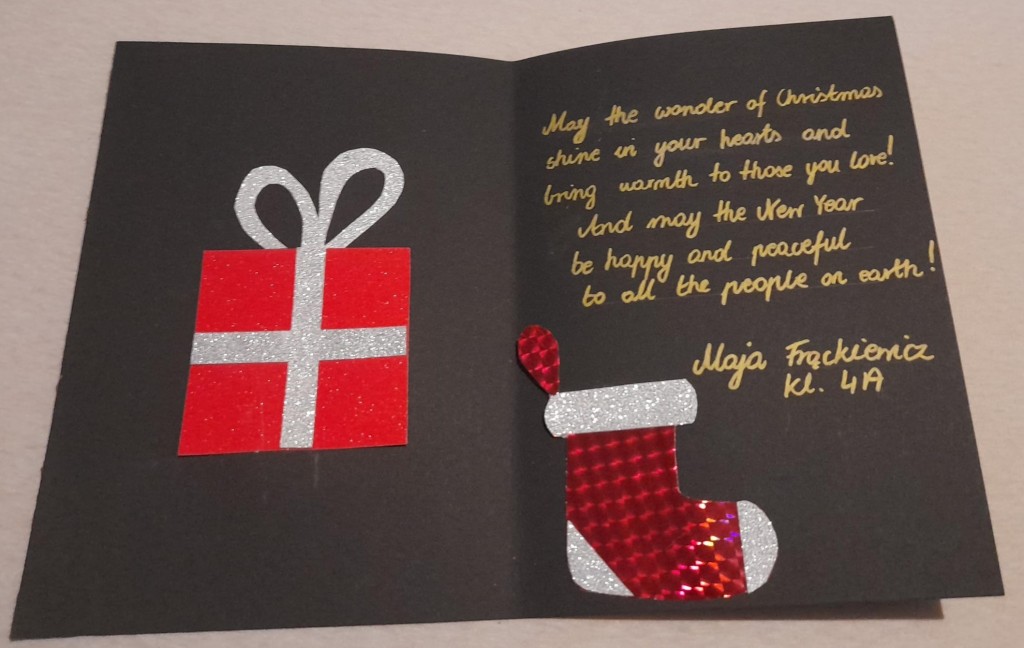 May the wonder of Christmas
shine in your hearts and
bring warmth to those you love!
And may the New Year
be happy and peaceful
to all the people on earth!
Maja Frąckiewicz
kl. 4A